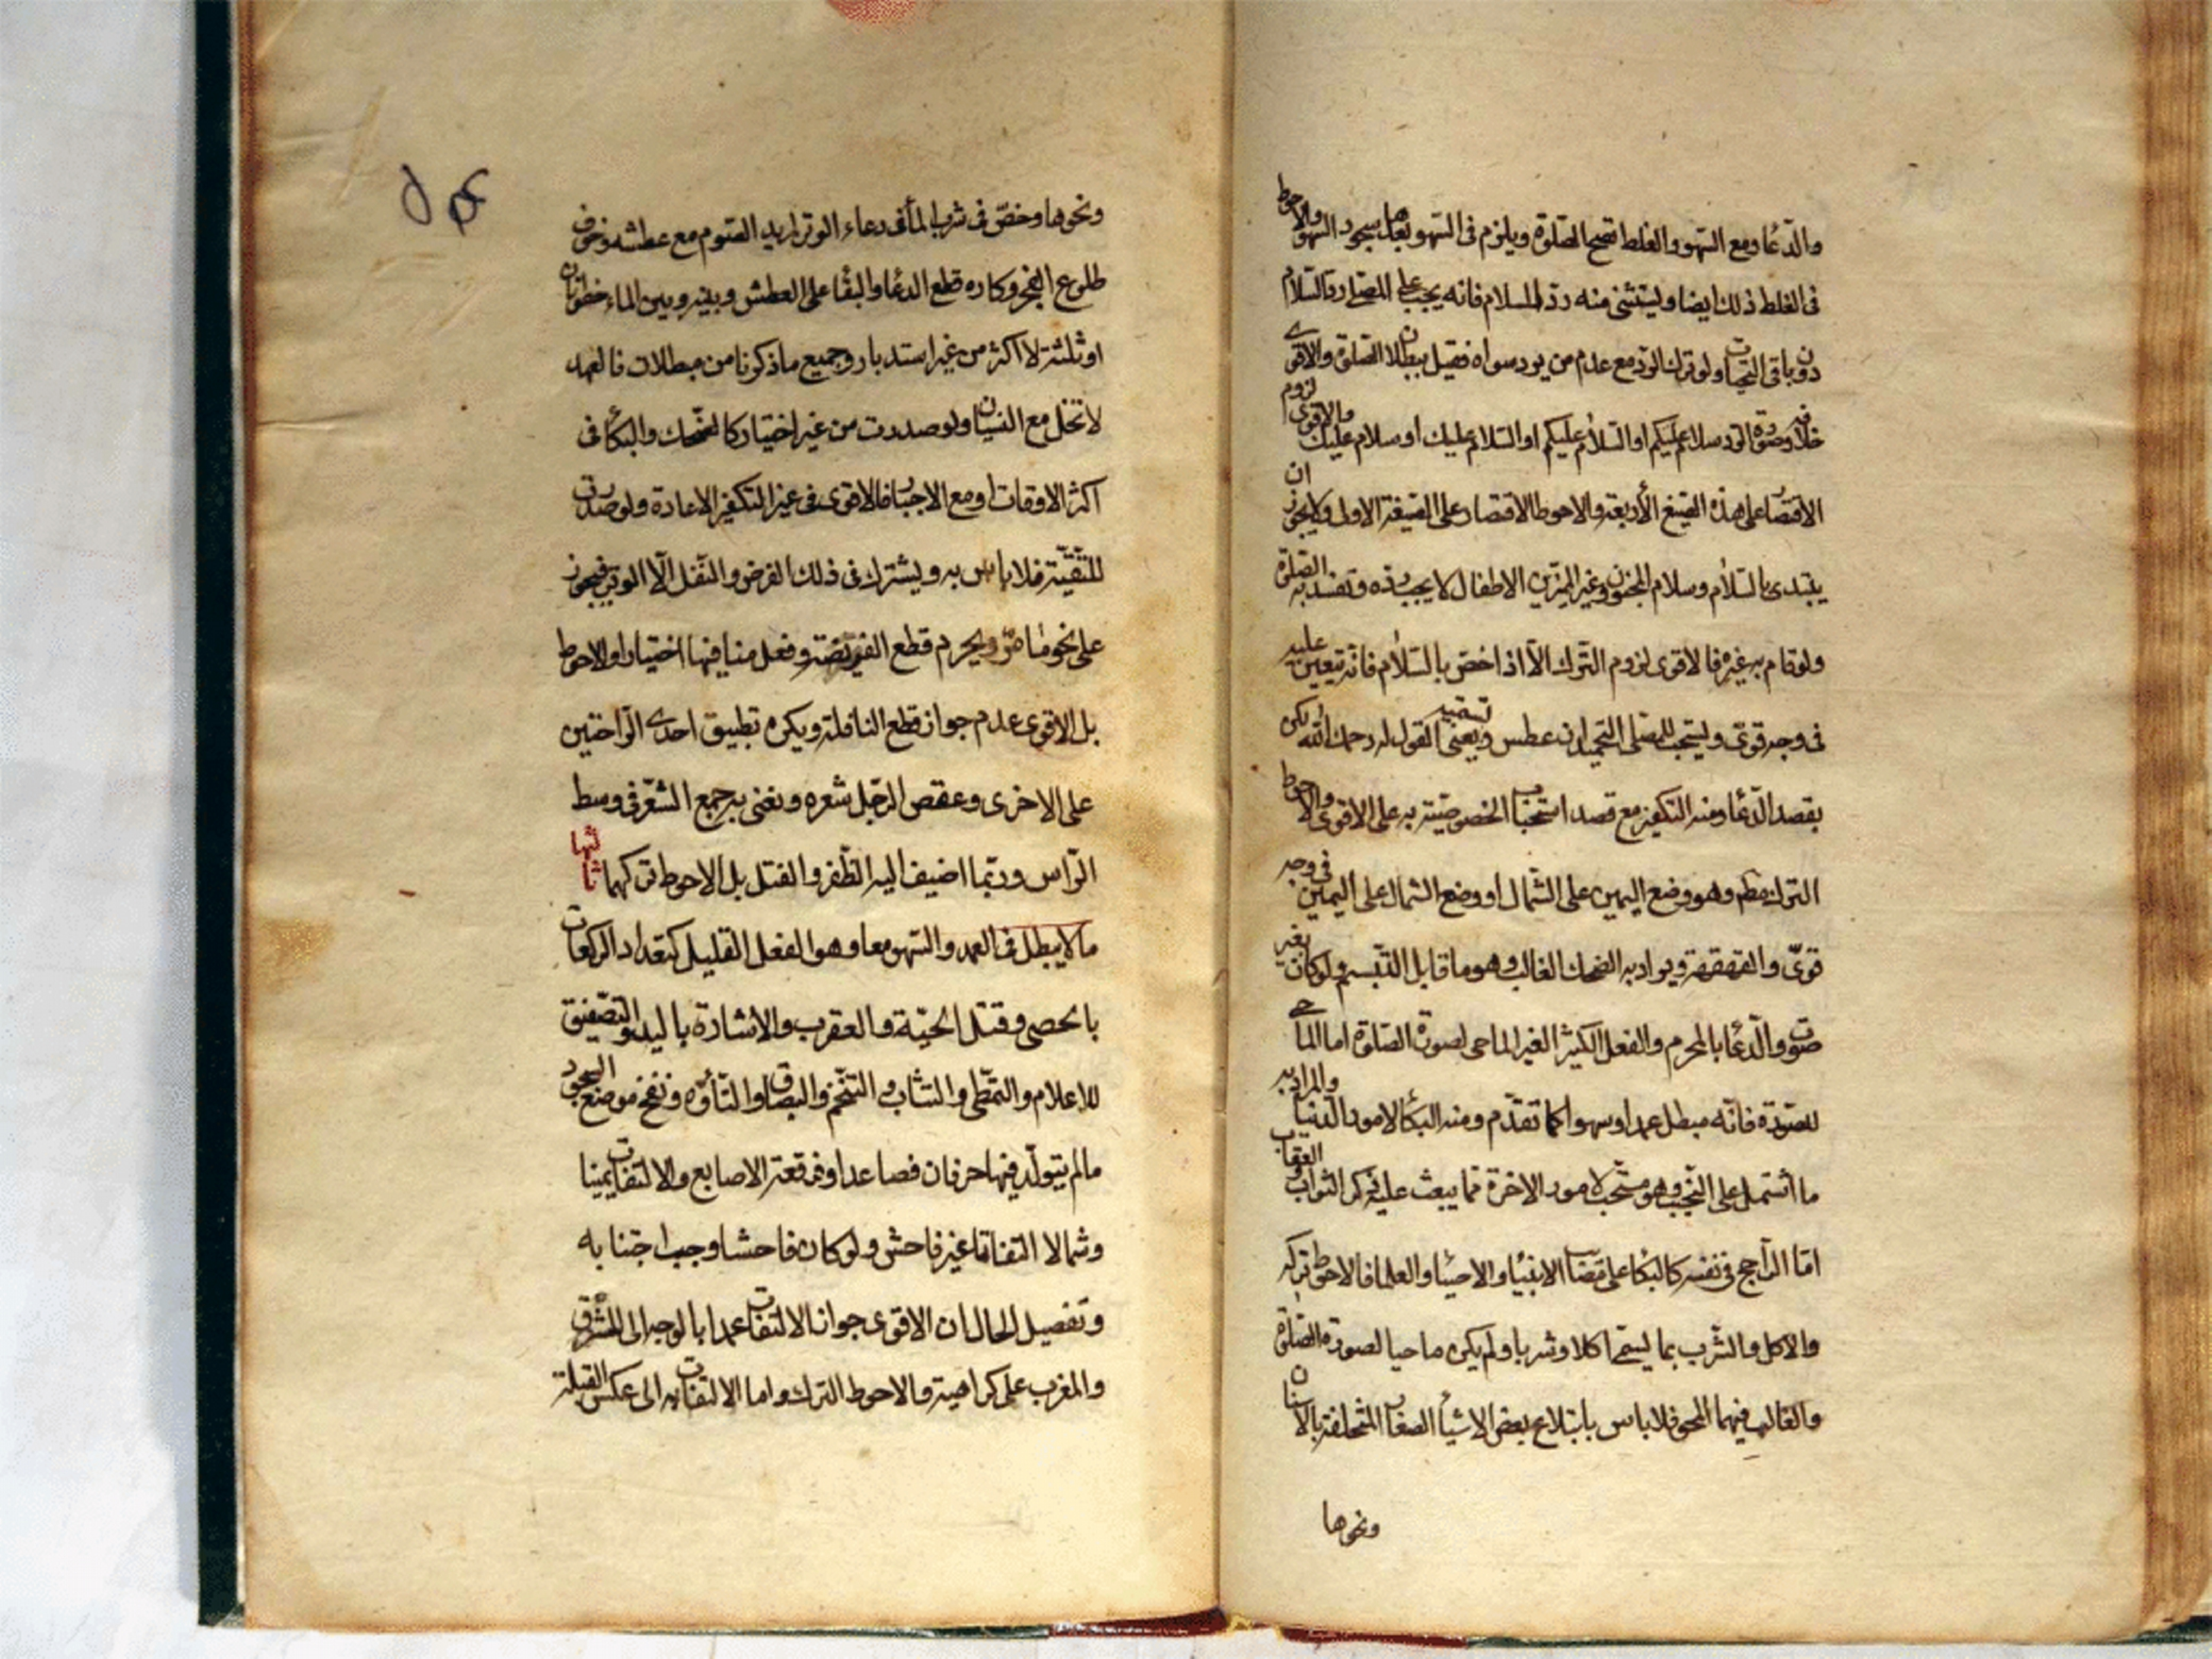 والدعا ومع السهو والغلط تصح الصلوة ويلزم فى السهو بعدها سجود السهو والاحوط
فى الغلط ذلك ايضا ويستثنى منه رد السلام فانه يجب على المصلى رد السلام
دون باقى التحيات ولو ترك الرد مع عدم من يرد سواه فقيل ببطلان الصلوة والاقوى
خلافه وصورة الرد سلام عليكم او السلام عليكم او السلام عليك او سلام عليك والاقوى لزوم
الاقتصار على هذه الصيغ الأربعة والاحوط الاقتصار على الصيغة الاولى ولا يجوز ان
يبتدى بالسلام وسلام المجنون وغير المميز من الاطفال لا يجب رده وتفسد به الصلوة
ولو قام به غيره فالاقوى لزوم الترك الا اذا خص بالسلام فانه يتعين عليه
فى وجه قوى ويستحب للمصلى التحميد ان عطس ويعنى تسميته القول له رحمك الله لكن
بقصد الدعا ومنه التكفير مع قصد استحباب الخصوصية به على الاقوى والاحوط
الترك مطم وهو وضع اليمين على الشمال او وضع الشمال على اليمين فى وجه
قوى والقهقهة ويراد به الضحك الغالب وهو ما قابل التبسم ولو كان بغير
صوت والدعا بالمحرم والفعل الكثير الغير الماحى لصورة الصلوة اما الماحى
للصورة فانه مبطل عمدا وسهوا كما تقدم ومنه البكا لامور الدنيا والمراد به
ما اشتمل على النحيب وهو مستحب لامور الاخرة مما يبعث عليه ذكر الثواب والعقاب
اما الراجح فى نفسه كالبكا على مصاب الانبيا والاوصيا والعلما فالاحوط تركه
والاكل والشرب بما يسمى اكلا وشربا ولم يكن ماحيا لصورة الصلوة
والغالب فيهما المحو فلا باس بابتلاع بعض الاشيا الصغار المتخلفة بالاسنان
ونحوها
ونحوها وخص فى شرب الما فى دعاء الوتر لمريد الصوم مع عطشه وخوف
طلوع الفجر وكاره قطع الدعا والبقا على العطش وبينه وبين الماء خطوتان
او ثلثة لا اكثر من غير استدبار وجميع ما ذكرنا من مبطلات فالعمد
لا تخل مع النسيان ولو صدرت من غير اختيار كالضحك والبكا فى
اكثر الاوقات او مع الاجبار فالاقوى فى غير التكفير الاعادة ولو صدرت
للتقية فلا باس به ويشترك فى ذلك الفرض والنفل الا الوتر فيجوز
على نحو ما مر ويحرم قطع الفريضة وفعل منافيها اختيارا والاحوط
بل الاقوى عدم جواز قطع النافلة ويكره تطبيق احدى الراحتين
على الاخرى وعقص الرجل شعره ونعنى به جمع الشعر فى وسط
الراس وربما اضيف اليه الظفر والفتل بل الاحوط تركهما ثالثها
ما لا يبطل فى العمد والسهو معا وهو الفعل القليل كتعداد الركعات
بالحصى وقتل الحية والعقرب والاشارة باليد والتصفيق
للاعلام والتمطى والتثاب والتنخم والبصاق والتأوه ونفخ موضع السجود
ما لم يتولد فيها حرفان فصاعدا وفرقعة الاصابع والالتفات يمينا
وشمالا التفاتا غير فاحش ولو كان فاحشا وجب اجتنابه
وتفصيل الحال ان الاقوى جواز الالتفات عمدا بالوجه الى المشرق
والمغرب على كراهية والاحوط الترك واما الالتفات به الى عكس القبلة